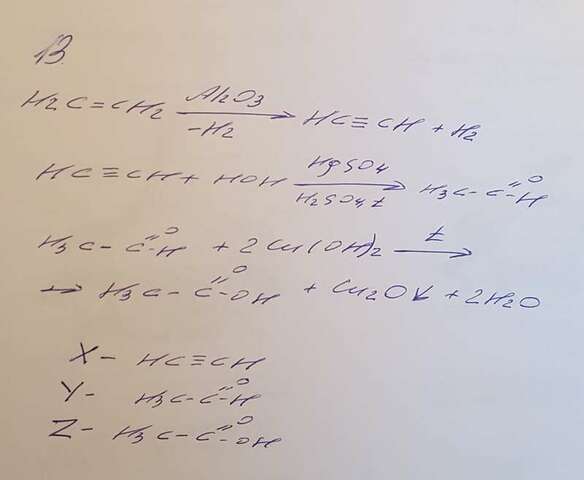 13.
H2C=CH2 Al2O3 -H2 → HC≡CH + H2
HC≡CH + HOH HgSO4 H2SO4, t → H3C-C=O-H
H3C-C=O-H + 2Cu(OH)2 t →
→ H3C-C=O-OH + Cu2O↓ + 2H2O
X- HC≡CH
Y- H3C-C=O-H
Z- H3C-C=O-OH